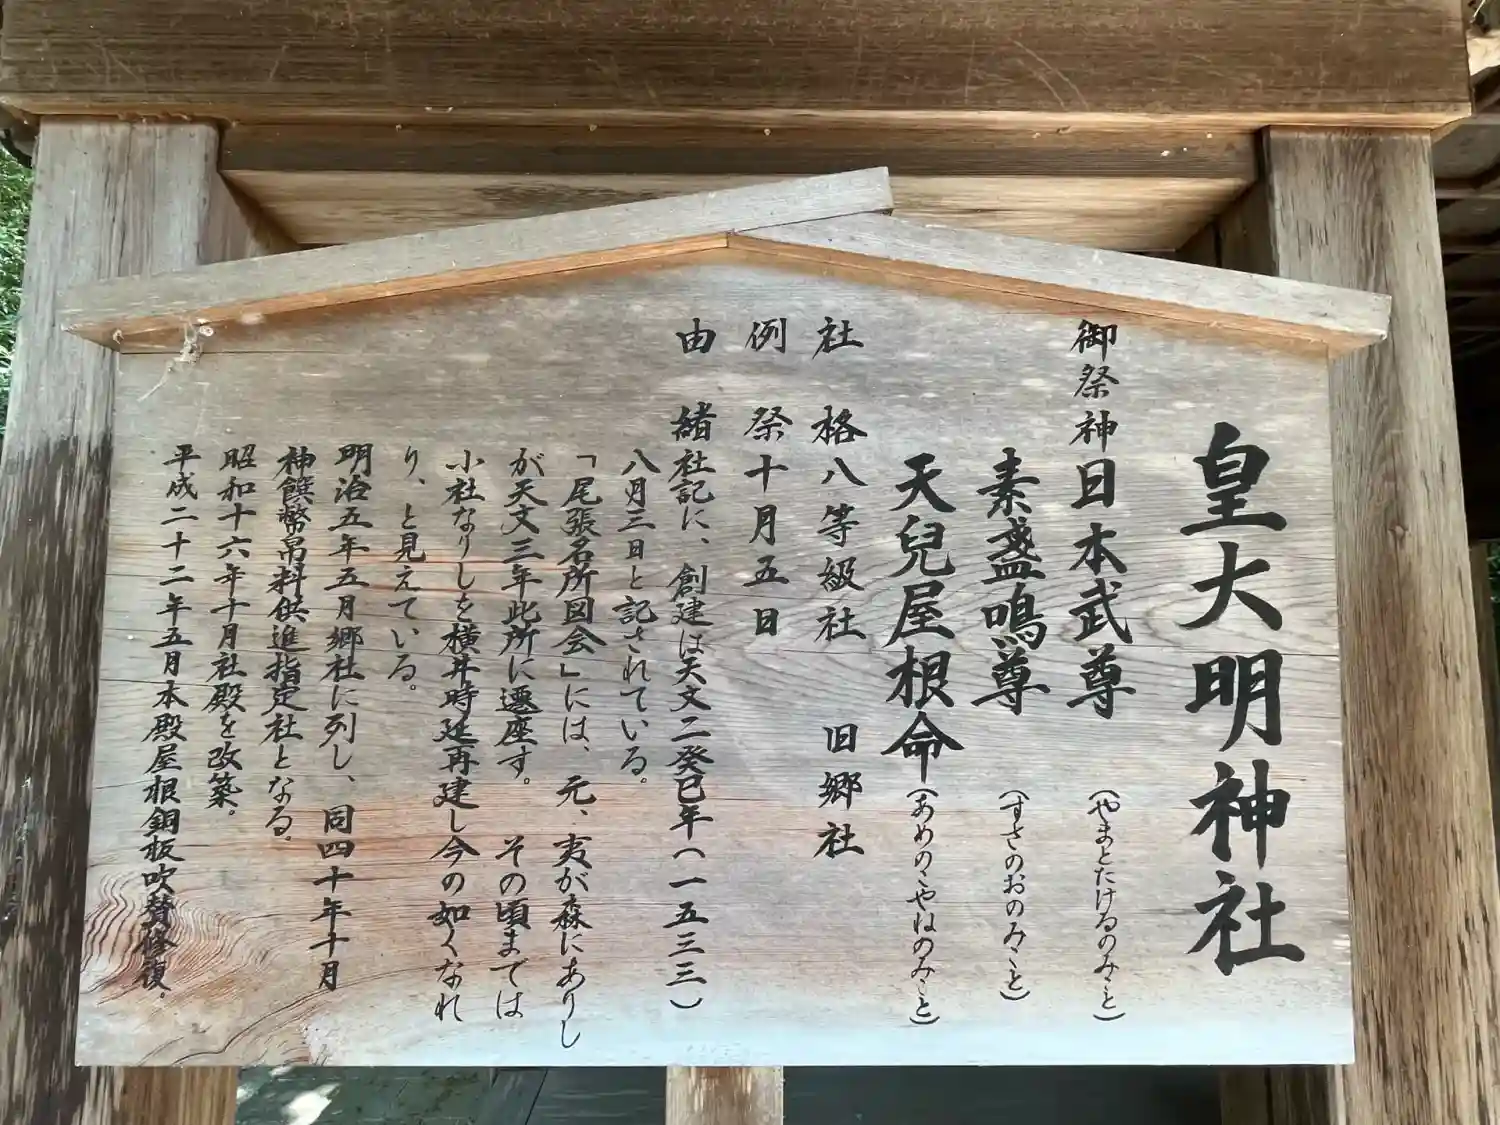 皇大明神社
御祭神 日本武尊（やまとたけるのみこと）
素盞鳴尊（すさのおのみこと）
天兒屋根命（あめのこやねのみこと）
社格 八等級社 旧郷社
例祭 十月五日
由緒 社記に、創建は天文二癸巳年（一五三三）
八月三日と記されている。
「尾張名所図会」には、元、夷が森にありし
が天文三年此所に遷座す。その頃までは
小社なりしを横井時延再建し今の如くなれ
り、と見えている。
明治五年五月郷社に列し、同四十年十月
神饌幣帛料供進指定社となる。
昭和十六年十月社殿を改築。
平成二十二年五月本殿屋根銅板吹替修復。